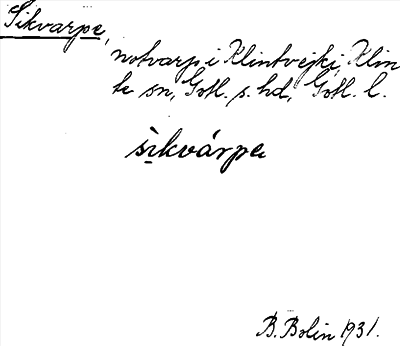 Sikvarpe,
notvarp i Klintvejki, Klin
te sn, Gotl. s. hd, Gotl. l.
sìkvárpa
B. Bolin 1931.